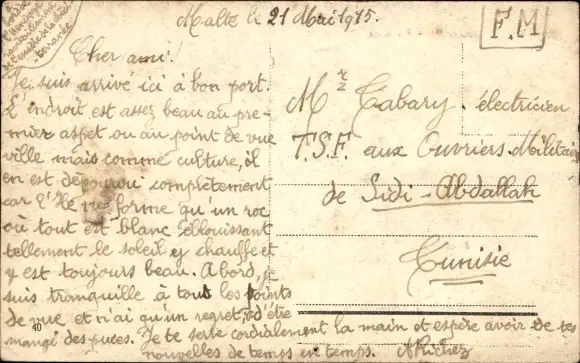 Malte le 21 Mai 1915.
F.M
Cher ami!
Je suis arrivé ici à bon port.
L'endroit est assez beau au pre-
mier aspet ou au point de vue
ville mais comme culture, il
en est dépourvu complètement
car l'Ile ne forme qu'un roc
où tout est blanc éblouissant
tellement le soleil y chauffe et
y est toujours beau. A bord, je
suis tranquille à tous les points
de vue et n'ai qu'un regret, d'être
mangé des puces. Je te serre cordialement la main et espère avoir de tes
nouvelles de temps en temps.
Mr Cabary, électricien
T.S.F. aux Ouvriers Militaires
de Sidi-Abdallah
Tunisie
40